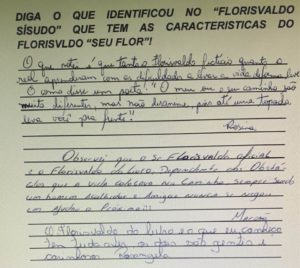 DIGA O QUE IDENTIFICOU NO "FLORISVALDO
SÍSUDO" QUE TEM AS CARACTERISTICAS DO
FLORISVLDO "SEU FLOR"!
O que notei é que tanto o Florisvaldo fictício quanto o
real aprenderam com as dificuldades a levar a vida de forma leve
E como disse um poeta: "O meu ou o seu caminho são
muito diferentes, mas não desanime, pois até uma topada
leva você pra frente".
Rosima
Observei que o sr Florisvaldo oficial
e o Florisvaldo do livro, Dependente dos Obstá
culos que a vida colocava no caminho sempre sendo
um homem e amigos nunca se negou
em ajudar o Próximo!!!
O Florisvaldo do livro e o que eu conheço
tem tudo a ver, os dois são gentis e